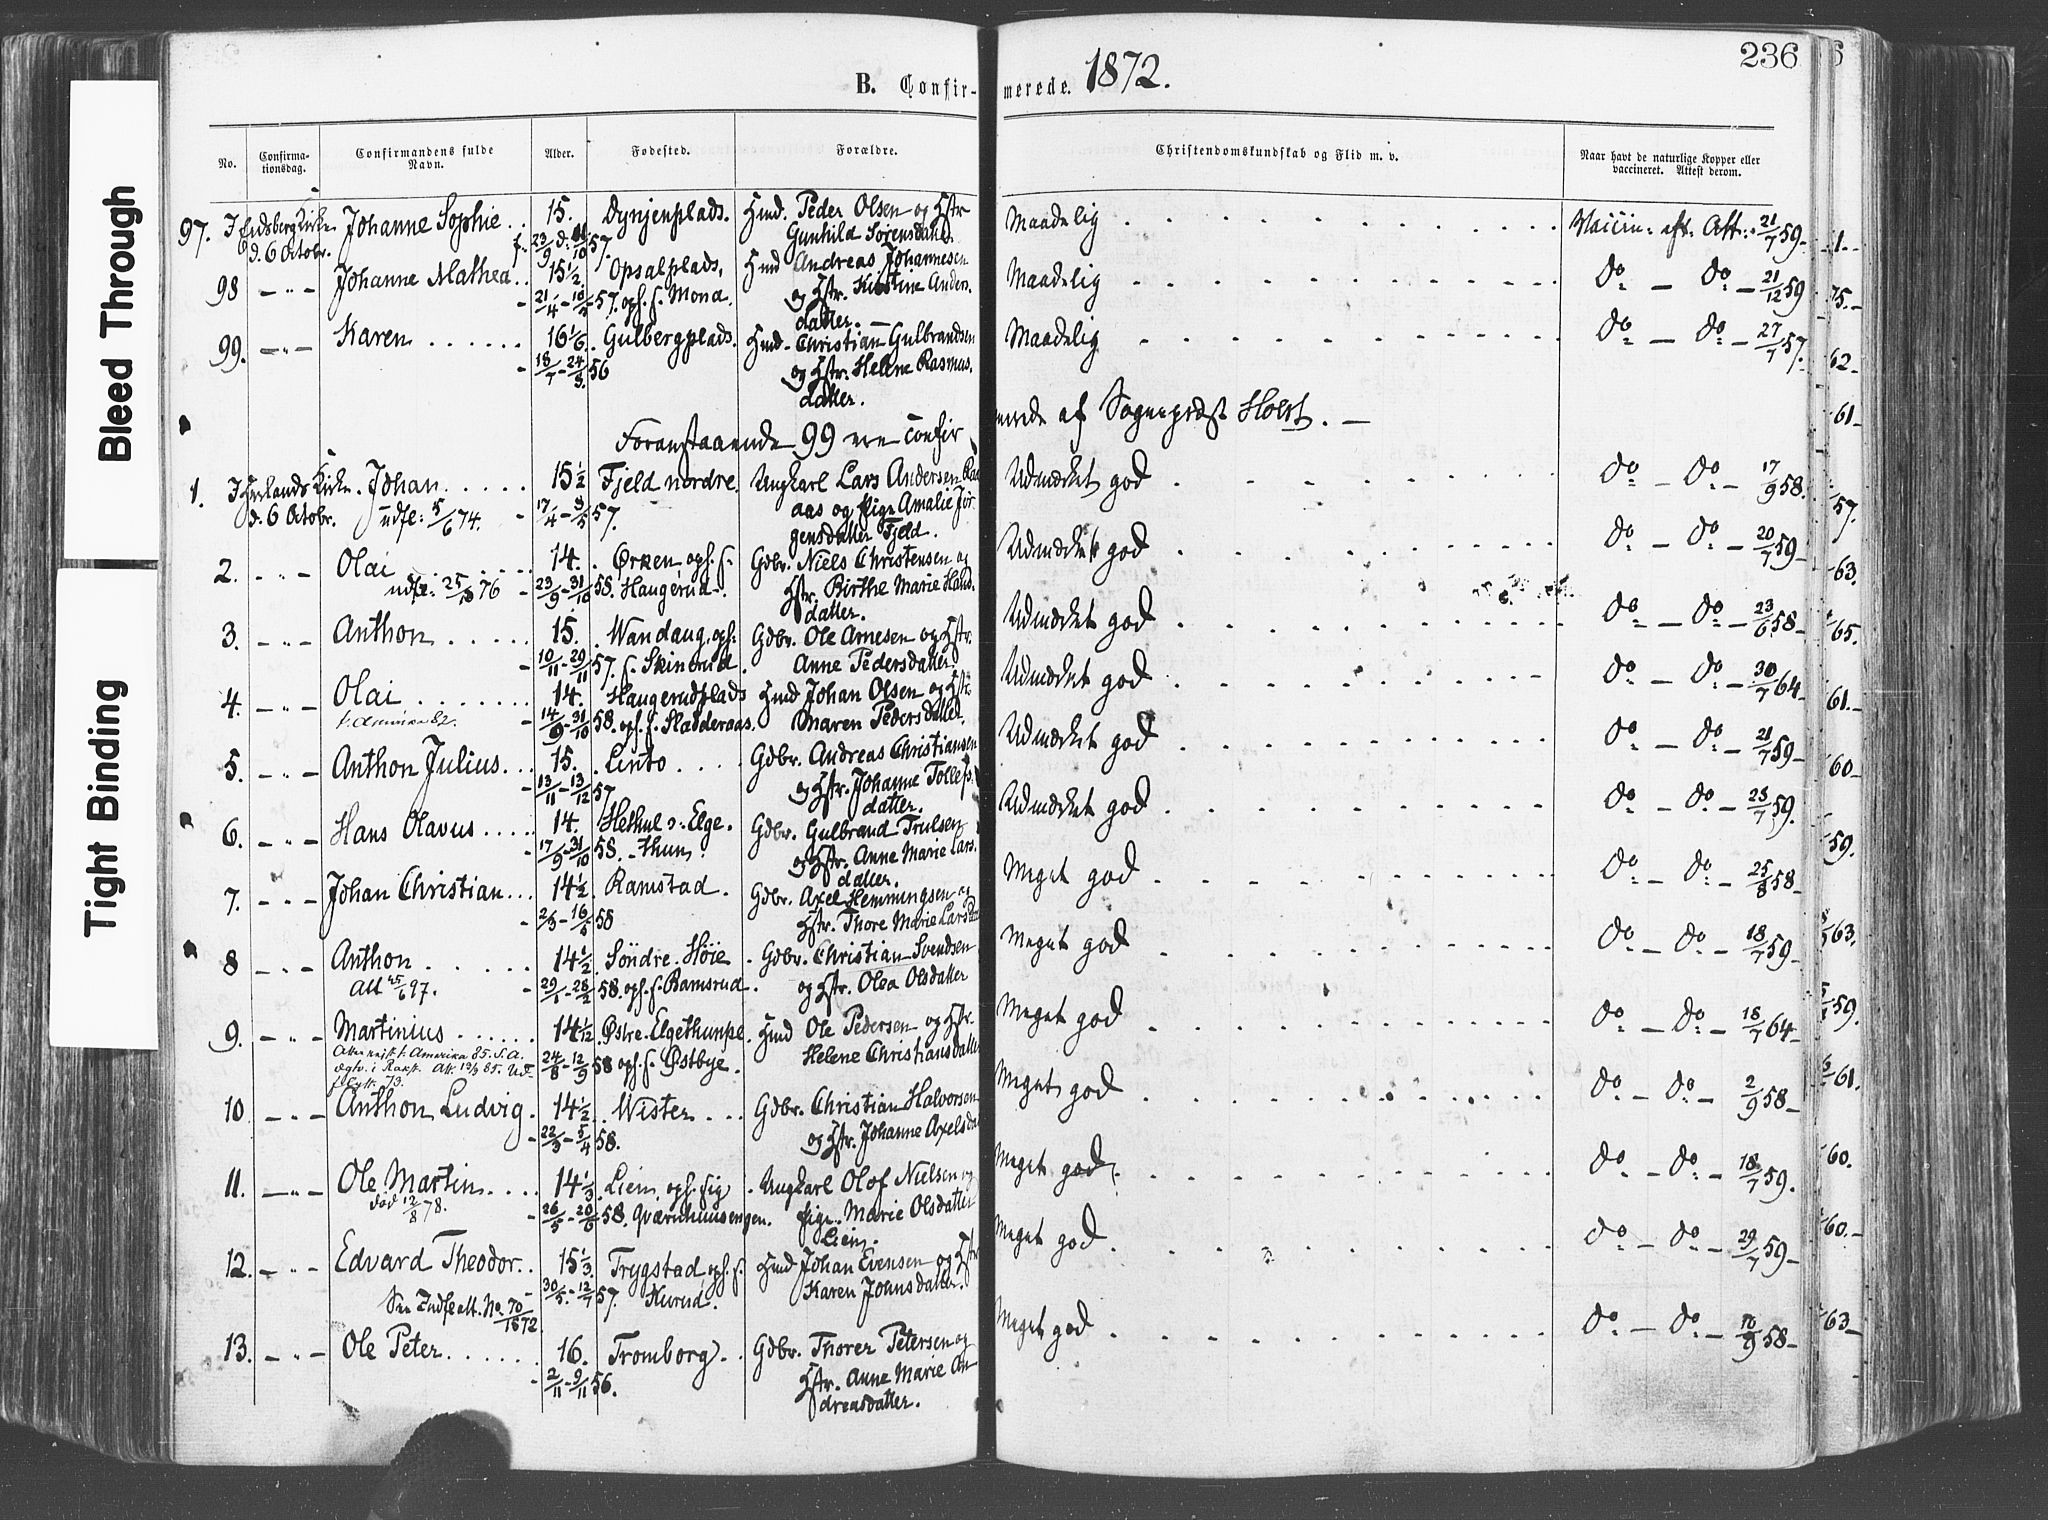 Bleed Through
Tight Binding
236
B. Confir- merede. 1872.
No. Confirma-tionsdag. Confirmandens fulde Navn. Alder. Fødested. Forældre. Christendomskundskab og Flid m. v. Naar havt de naturlige Kopper eller vaccineret. Attest derom.
97. I Eidsberg Kirke Johanne Sophie . . 15. Dynjenplads. Hmd. Peder Olsen og Hstr Maadelig Vaccin: eft. Att: 21/7 59
d. 6 Octobr. f. 23/9 d. 11/10 57. Gunhild Sørensdatter
98 — " — Johanne Mathea . . 15 1/2 Opsalplads, Hmd Andreas Johannesen Maadelig do — do — 21/12 59
- 21/4 - 10/5 57. oph. f. Mona. og Hstr. Kirstine Anders-
datter. —
99. — " — Karen . . . . . . 16 1/6 Gulbergplads. Hmd. Christian Gulbrandsen Maadelig do — do — 27/7 57.
- 18/7 - 24/8 56 og Hstr. Helene Rasmus-
datter.
Foranstaaende 99 ere confir merede af Sogneprest Holst. —
1. I Herlands Kirke Johan . . . . . 15 1/2 Fjeld nordre. Ungkarl Lars Andersen Udmærket god do — do — 17/9 58.
d. 6 Octobr. udfl: 5/6 74. - 17/4 - 8/5 57. aas og Pige Amalie Jør-
gensdatter Fjeld.
2. — " — Olai . . . . . 14. Ørken oph. f. Gdbr. Niels Christensen og Udmærket god do — do — 20/7 59
udfl: 25/10 76 - 23/9 - 31/10 58. Haugerud. Hstr. Birthe Marie Hans-
datter.
3. — " — Anthon . . . . . 15. Wandaug, oph: Gdbr. Ole Arnesen og Hstr. Udmærket god do — do — 23/6 58
- 10/11 - 29/11 57. f. Skinerud. Anne Pedersdatter.
4. — " — Olai . . . . . . . 14. Haugerudplads Hmd Johan Olsen og Hstr. Udmærket god do — do — 30/7 64
t. Amerika 82. - 14/9 - 31/10 58. oph. f. Sladderaas. Maren Pedersdatter.
5. — " — Anthon Julius . . . 15. Linto . . . . Gdbr. Andreas Christiansen Udmærket god do — do — 21/7 59
- 13/11 - 13/12 57 og Hstr. Johanne Tollefs-
datter.
6. — " — Hans Olavus . . . . . 14. Hethul v: Elge- Gdbr. Gulbrand Trulsen Udmærket god do — do — 23/7 59.
- 17/9 - 31/10 58. - thun. og Hstr. Anne Marie Lars-
datter.
7. — " — Johan Christian . . . 14 1/2 Ramstad. Gdbr. Axel Hemmingsen og Meget god do — do — 25/8 58
- 2/3 - 16/5 58 Hstr. Thore Marie Larsdatter
8 — " — Anthon . . . . . 14 1/2 Søndre Høie Gdbr. Christian Svendsen Meget god do — do — 18/7 59
Att 25/6 97. - 29/1 - 28/2 58. oph. f. Ramsrud. og Hstr. Olea Olsdatter
9. — " — Martinius . . . . . . 14 1/12 Østre Elgethunpl. Hmd Ole Pedersen og Hstr. Meget god do — do — 18/7 64
t. Amerika 85. - 24/8 - 12/9 58 oph. f. Østbye. Helene Christiansdatter
10 — " — Anthon Ludvig . 14 1/2 Wister . . . Gdbr. Christian Halvorsen Meget god do — do — 2/9 58
- 22/3 - 5/4 58. og Hstr. Johanne Axelsdatter
11. — " — Ole Martin . . . . 14 1/3 Liem, oph. sig Ungkarl Olof Nielsen og Meget god do — do — 18/7 59.
død 12/8 78. - 26/5 - 20/6 58. Qværnhuusengen. Pige Marie Olsdatter
Liem.
12. — " — Edvard Theodor . . 15 1/3 Trygstad, oph. f. Hmd Johan Evensen og Hstr Meget god do — do — 29/7 59
- 30/5 - 12/7 57. Kurud. Karen Johnsdatter.
See Indfl. att. No. 70/1872
13. — " — Ole Peter . . . . . . 16. Tromborg . . Gdbr. Thorer Petersen og Meget god do — do — 10/9 58
- 2/11 - 9/11 56. Hstr. Anne Marie An-
dreasdatter.